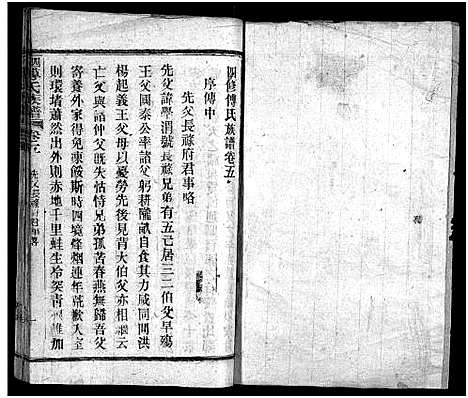 四修傅氏族譜卷五
序傳中
先父長祿府君事略
先父諱學渭號長祿兄弟有五己居三二伯父早殤
王父國泰公率諸父躬耕隴畝自食其力咸同間洪
楊起義王父母以憂勞先後見背大伯父亦相繼云
亡父與諸仲父既失怙恃兄弟孤苦春燕無歸吾父
寄養外家得免凍餒斯時四境烽烟連年荒歉入室
則環堵蕭然出外則赤地千里蛙生冷突靑誰加
四修傅氏族譜 卷五 先父長祿府君事略 一